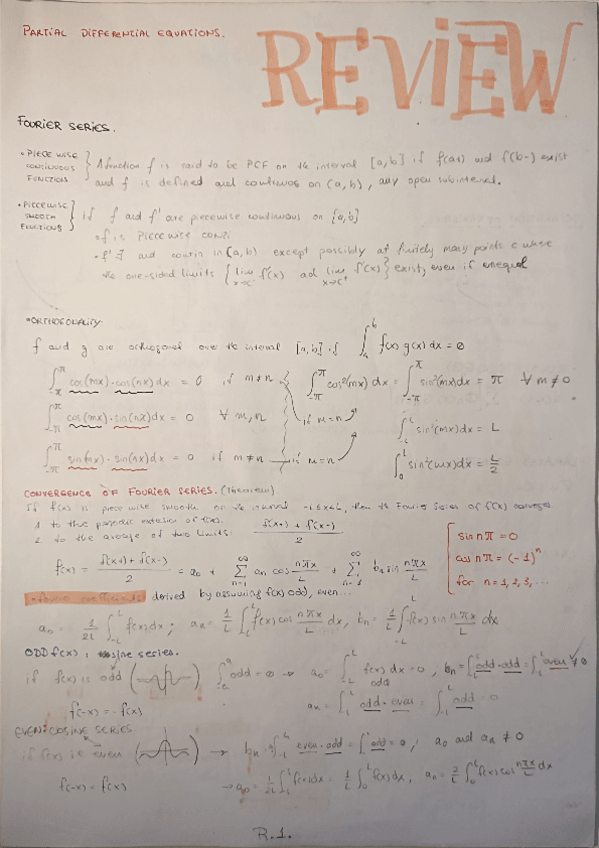 PARTIAL DIFFERENTIAL EQUATIONS.
REVIEW
FOURIER SERIES.
• PIECEWISE CONTINUOUS FUNCTIONS } A function f is said to be PCF on the interval [a,b] if f(a+) and f(b-) exist
and f is defined and continuos on (a,b), any open subinterval.
• PIECEWISE SMOOTH FUNCTIONS } if f and f' are piecewise continuous on [a,b]
• f is piecewise cont.
• f' ∃ and contin in (a,b) except possibly at finitely many points c where
the one-sided limits { lim x→c⁻ f'(x) ad lim x→c⁺ f'(x) } exist, even if unequal
• ORTHOGONALITY
f and g are orthogonal over the interval [a,b] if ∫_a^b f(x) g(x) dx = 0
∫_{-π}^{π} cos(mx)·cos(nx) dx = 0 if m≠n if m=n ∫_{-π}^{π} cos²(mx) dx = ∫_{-π}^{π} sin²(mx) dx = π ∀ m≠0
∫_{-π}^{π} cos(mx)·sin(nx) dx = 0 ∀ m,n ∫_{-L}^{L} sin²(mx) dx = L
∫_{-π}^{π} sin(mx)·sin(nx) dx = 0 if m≠n if m=n ∫_0^L sin²(mx) dx = L/2
CONVERGENCE OF FOURIER SERIES. (Theorem)
If f(x) is piece wise smooth on the interval -L≤x≤L, then the Fourier Series of f(x) converges
1 to the periodic extension of f(x).
2 to the average of two limits: f(x+) + f(x-) / 2
f(x) = f(x+) + f(x-) / 2 = a₀ + ∑_{n=1}^{∞} aₙ cos nπx/L + ∑_{n=1}^{∞} bₙ sin nπx/L
sin nπ = 0
cos nπ = (-1)ⁿ
for n = 1, 2, 3, ...
• fourier coefficients derived by assuming f(x) odd, even...
a₀ = 1/2L ∫_{-L}^{L} f(x) dx ; aₙ = 1/L ∫_{-L}^{L} f(x) cos nπx/L dx, bₙ = 1/L ∫_{-L}^{L} f(x) sin nπx/L dx
ODD f(x) : sine series.
if f(x) is odd odd = 0 → a₀ = ∫_{-L}^{L} f(x) dx = 0 , bₙ = ∫ odd·odd = ∫ even ≠ 0
odd
f(-x) = -f(x) aₙ = ∫_{-L}^{L} odd·even = ∫_{-L}^{L} odd = 0
EVEN: COSINE SERIES
if f(x) is even → bₙ = ∫_{-L}^{L} even·odd = ∫ odd = 0 , a₀ and aₙ ≠ 0
f(-x) = f(x) → a₀ = 1/2L ∫_{-L}^{L} f(x) dx = 1/L ∫_0^L f(x) dx, aₙ = 2/L ∫_0^L f(x) cos nπx/L dx
R.1.